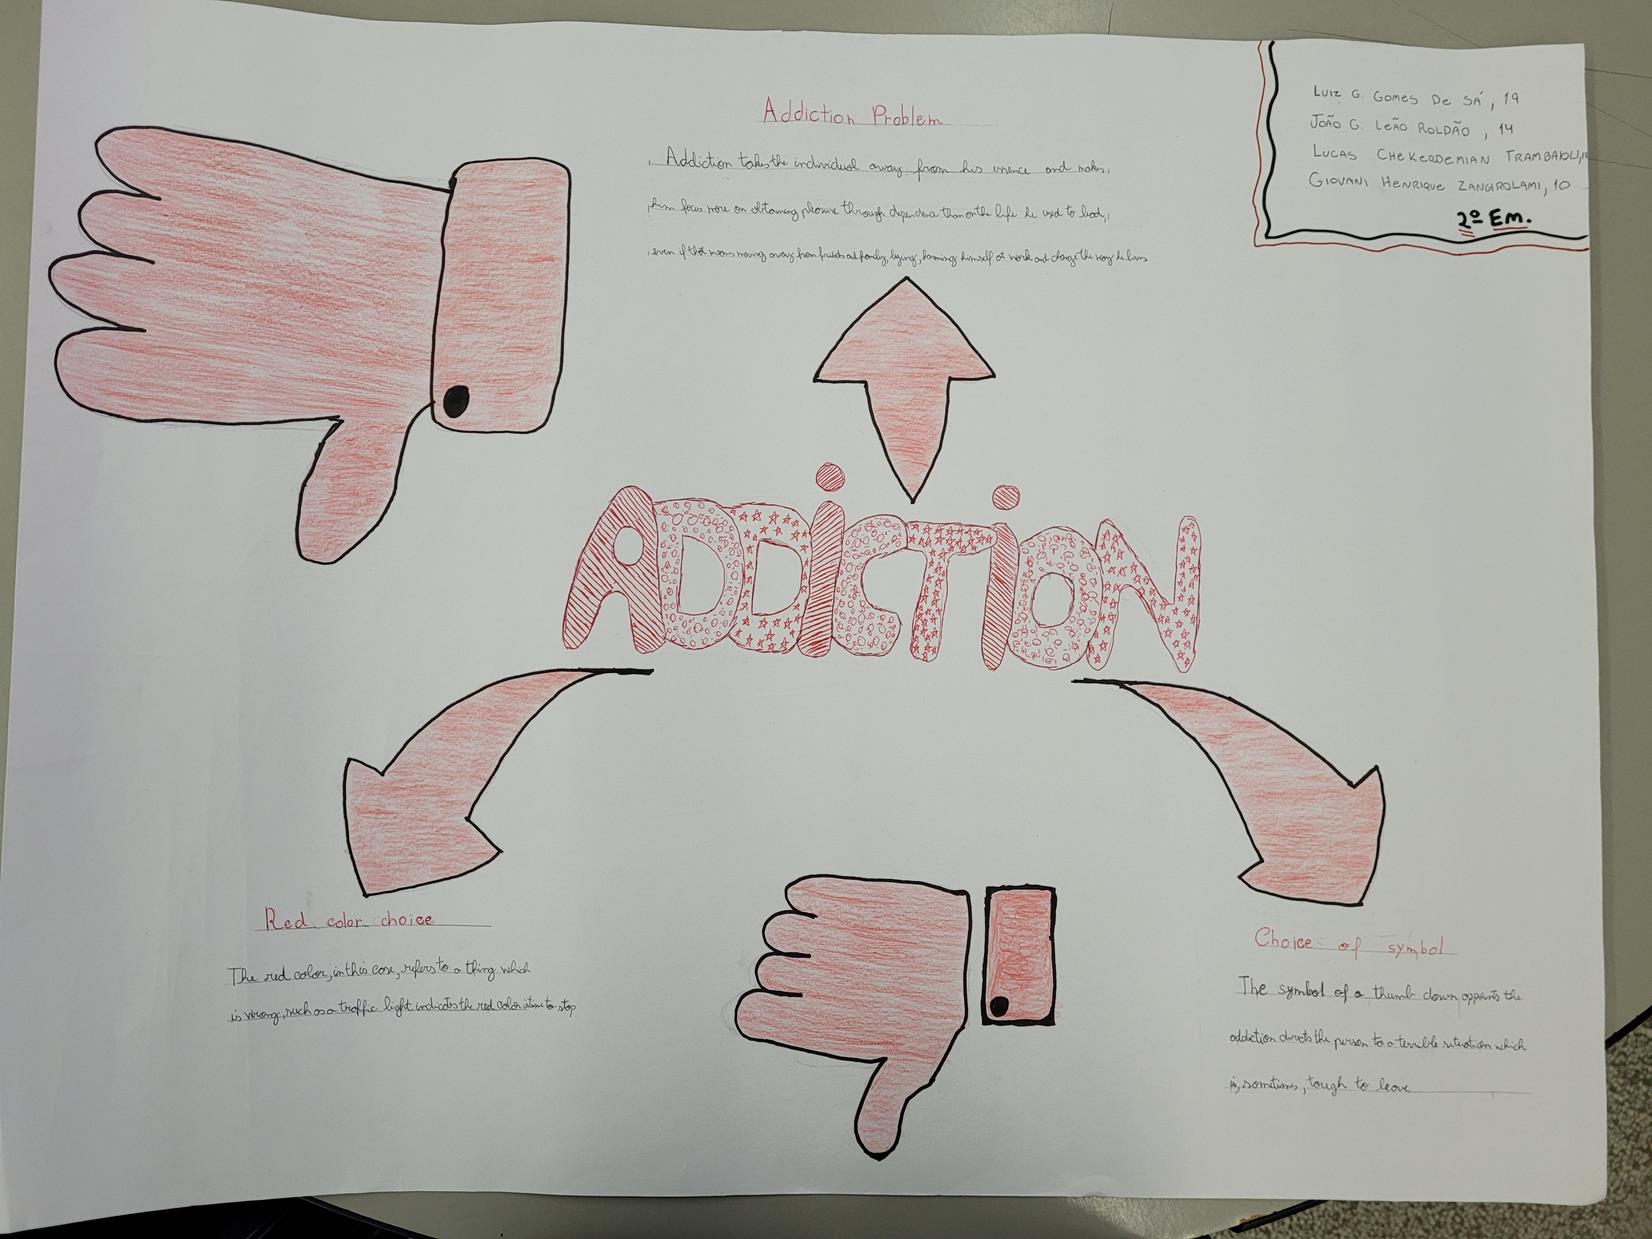 Luiz G. Gomes De Sá, 19
João G. Leão Roldão, 14
Lucas Chekerdemian Trambaioli,
Giovani Henrique Zangirolami, 10
2º Em.
Addiction Problem
Addiction takes the individual away from his essence and makes
him focus more on obtaining pleasure through dependence than on the life he used to lead,
even if that means moving away from friends and family, lying, harming himself at work and change the way he lives
ADDiCTiON
Red color choice
The red color, in this case, refers to a thing which
is wrong, such as a traffic light indicates the red color time to stop
Choice of symbol
The symbol of a thumb down, the
addiction directs the person to a terrible situation which
is, sometimes, tough to leave